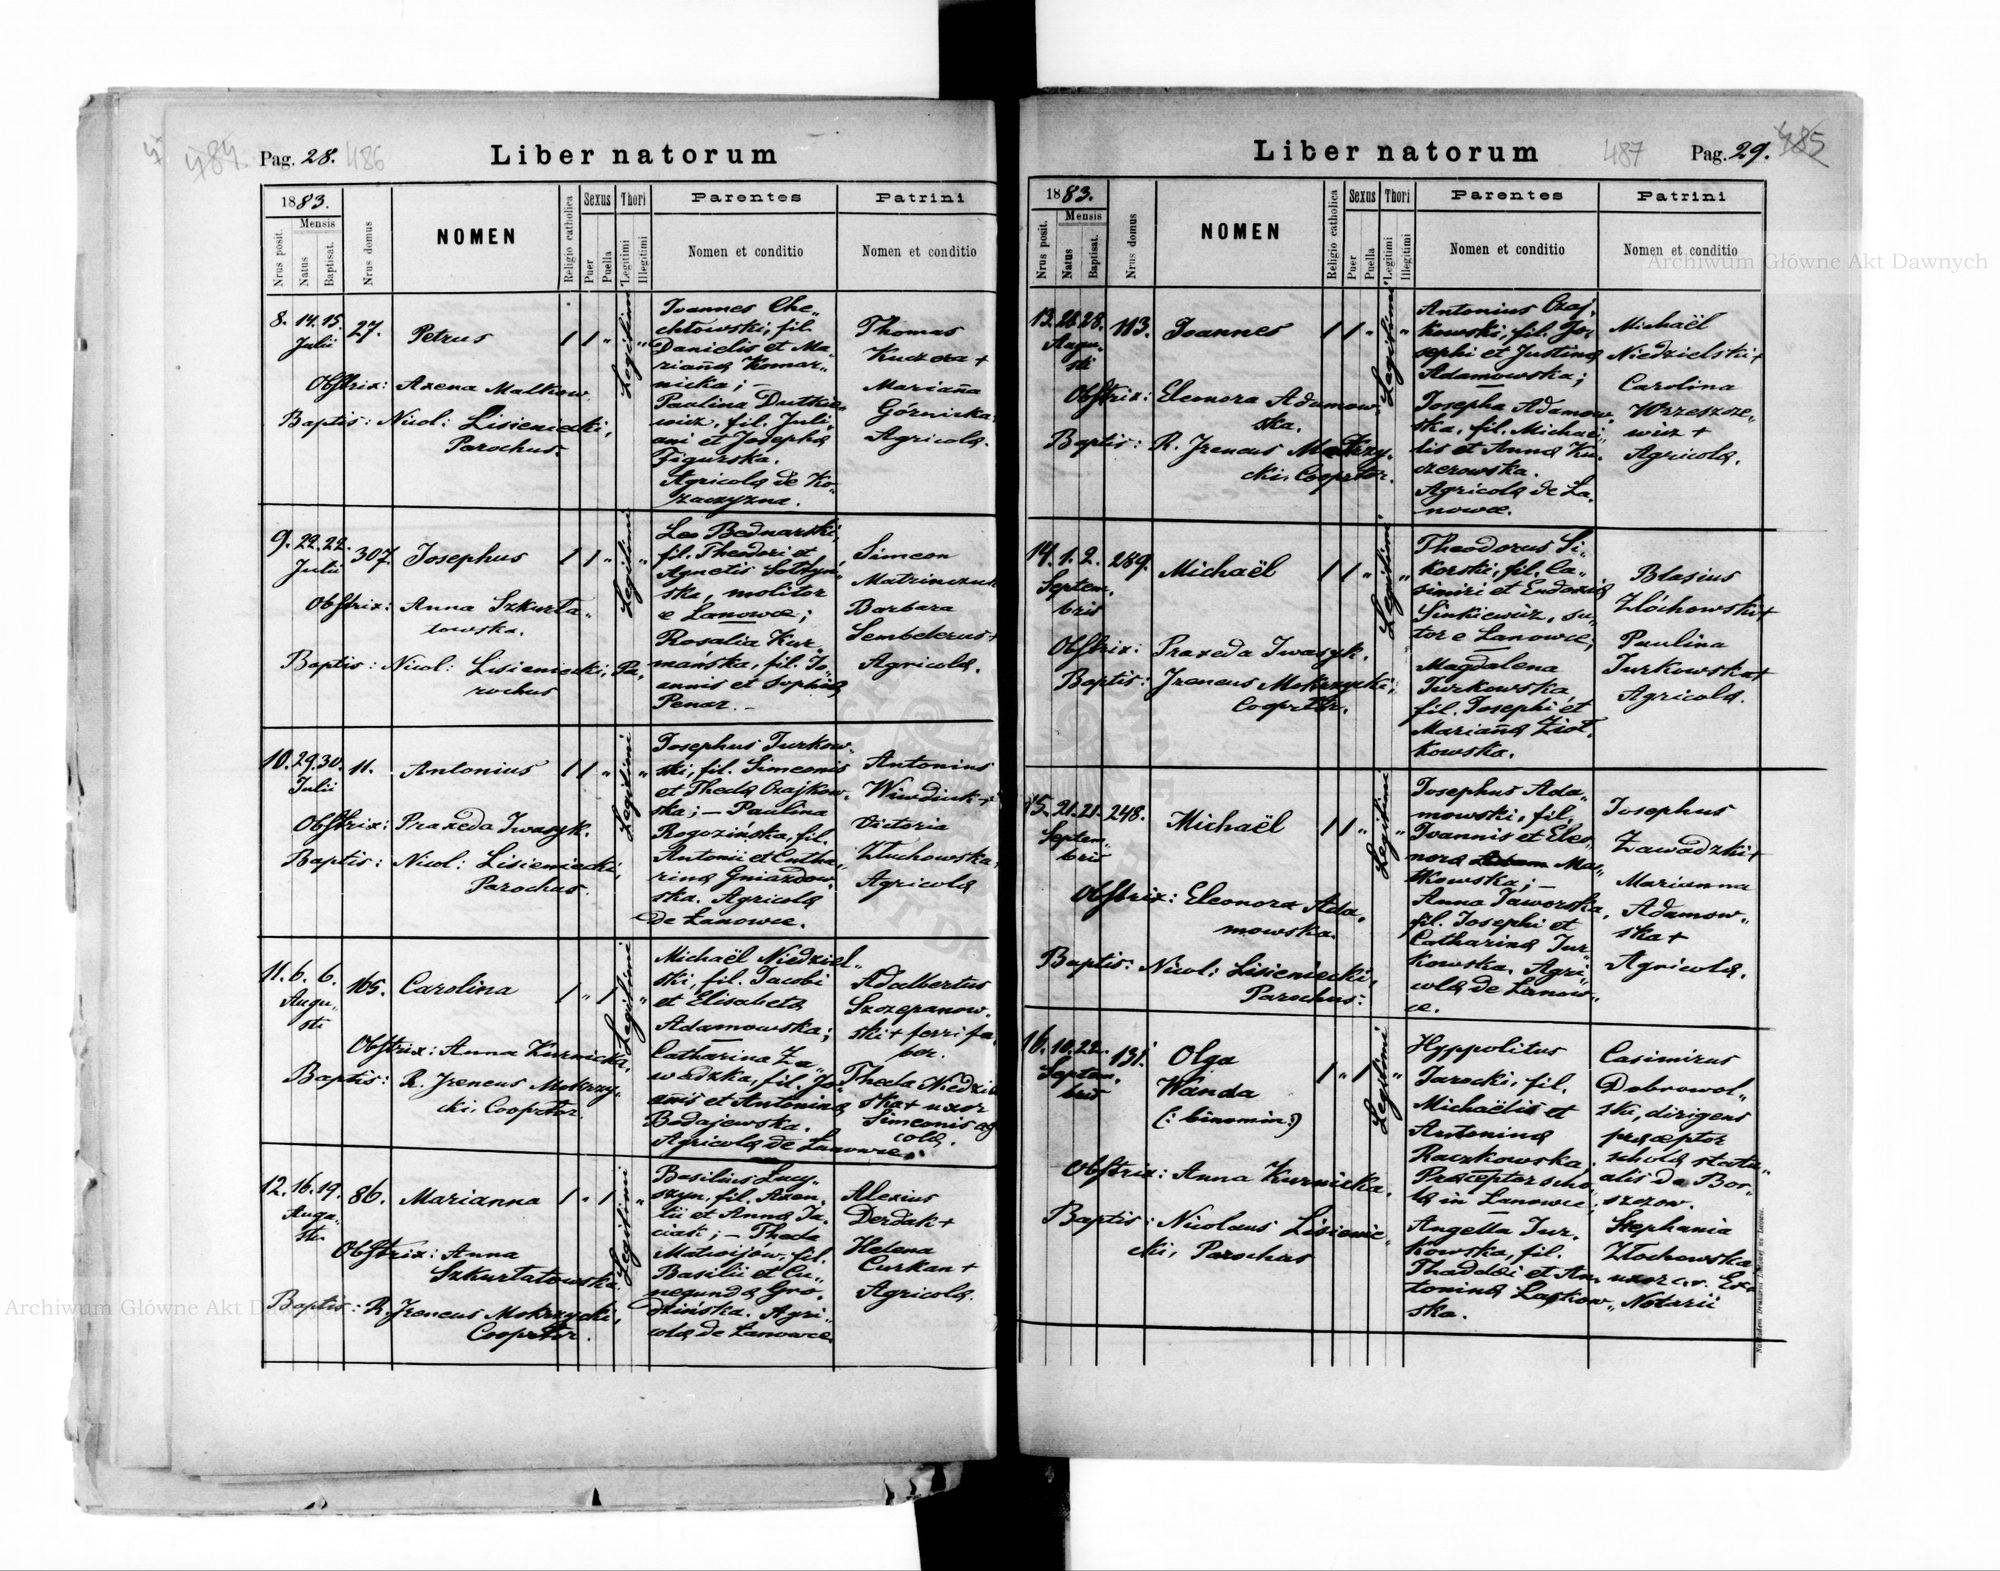 484. Pag. 28. 486 Liber natorum
1883. Nrus domus NOMEN Religio catholica Sexus Thori Parentes Patrini
Mensis
Nrus posit. Natus Baptisat. Puer Puella Legitimi Illegitimi Nomen et conditio Nomen et conditio
8. 14. 15. 27. Petrus
Julii
Obstrix: Axena Malkow.
Baptis: Nicol: Lisieniecki,
Parochus.
Legitimi
Joannes Che„
chłowski, fil.
Danielis et Ma„
rianna Komar„
nicka; —
Paulina Dutkie„
wicz, fil. Juli„
ani et Josepha
Figurska.
Agricola de Ko„
zaczyzna.
Thomas
Kuczera +
Marianna
Górnicka
Agricola.
9. 22. 22. 307. Josephus
Julii
Obstrix: Anna Szkurła„
towska.
Baptis: Nicol: Lisieniecki, Pa„
rochus
Legitimi
Leo Bednarski,
fil. Theodori et
Agnetis
ska, molitor
e Lanowce;
Rosalia Kur„
mańska, fil. Jo„
annis et Sophia
Penar. —
Simeon
Barbara
Sembelerus +
Agricola.
10. 29. 30. 11. Antonius
Julii
Obstrix: Praxeda Iwasyk.
Baptis: Nicol: Lisieniecki,
Parochus.
Legitimi
Josephus Turkow„
ski, fil. Simeonis
et Thecla Czajkow„
ska; — Paulina
Rogozińska, fil.
Antonii et Catha„
rina Gniazdow„
ska. Agricola
de Lanowce.
Antonius
Victoria
Złuchowska
Agricola
11. 6. 6. 165. Carolina
Augu„
sti
Obstrix: Anna Kurnicka.
Baptis: R. Ireneus Mokrzy„
cki, Cooprtor.
Legitimi
Michaël Niedziel„
ski, fil. Jacobi
et Elisabeta
Adamowska;
Catharina Za„
wadzka, fil. Jo„
anis et Antonina
Bodajewska.
Agricola de Lanowce.
Adalbertus
Szczepanow„
ski + ferri fa„
ber.
Thecla Niedziel
ska + uxor
Simeonis ag
cola.
12. 16. 19. 86. Marianna
Augu„
sti
Obstrix: Anna
Szkurłatowska.
Baptis: R. Ireneus Mokrzycki,
Cooprtor.
Legitimi
Basilius Lucy„
szyn, fil. Axen„
tii et Anna Ja„
ciak; — Thecla
Matwijow, fil.
Basilii et Cu„
negunda Gro„
dzińska. Agri„
cola de Lanowce.
Alexius
Derdak +
Helena
Curkan +
Agricola.
Liber natorum 487 Pag. 29. 485
1883. Nrus domus NOMEN Religio catholica Sexus Thori Parentes Patrini
Mensis
Nrus posit. Natus Baptisat. Puer Puella Legitimi Illegitimi Nomen et conditio Nomen et conditio
13. 28. 28. 113. Joannes
Augu„
sti
Obstrix: Eleonora Adamow„
ska.
Baptis: R. Ireneus Mokrzy„
cki, Cooprtor.
Legitimi
Antonius Czaj„
kowski, fil. Jo„
sephi et Justina
Adamowska;
Josepha Adamow„
ska, fil. Michaë„
lis et Anna Ku„
czerowska.
Agricola de La„
nowce.
Michaël
Niedzielski +
Carolina
Wrzeszcze„
wicz +
Agricola.
14. 1. 2. 289. Michaël
Septem„
bris
Obstrix: Praxeda Iwasyk.
Baptis: Ireneus Mokrzycki,
Cooprtor.
Legitimi
Theodorus Si„
korski, fil. Ca„
simiri et Eudoxia
Sinkiewicz, su„
tor e Lanowce;
Magdalena
Turkowska,
fil. Josephi et
Marianna Ziół„
kowska.
Blasius
Złochowski +
Paulina
Turkowska +
Agricola.
15. 21. 21. 248. Michaël
Septem„
bris
Obstrix: Eleonora Ada„
mowska.
Baptis: Nicol: Lisieniecki,
Parochus.
Legitimi
Josephus Ada„
mowski, fil.
Joannis et Eleo„
nora Ma„
tkowska; —
Anna Jaworska,
fil. Josephi et
Catharina Tur„
kowska. Agri„
cola de Lanow„
ce.
Josephus
Zawadzki +
Marianna
Adamow„
ska +
Agricola.
16. 10. 22. 131. Olga
Septem„ Wanda
bris (: binomin:)
Obstrix: Anna Kurnicka.
Baptis: Nicolaus Lisienie„
cki, Parochus
Legitimi
Hyppolitus
Jarocki, fil.
Michaëlis et
Antonina
Raczkowska.
Præceptor scho„
la in Lanowce;
Angella Tur„
kowska, fil.
Thaddæi et An„
tonina Laskow„
ska.
Casimirus
Dobrowol„
ski, dirigens
præceptor
schola statu„
alis de Bor„
szczow.
Stephania
Złochowska
uxor c. r. Ex„
Notarii
Archiwum Główne Akt Dawnych
Archiwum Główne Akt Dawnych